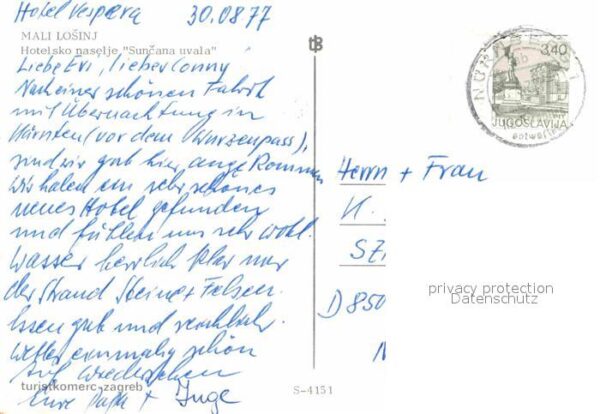 Hotel Vespera 30.08.77
MALI LOŠINJ
Hotelsko naselje "Sunčana uvala"
Liebe Evi, lieber Conny
Nach einer schönen Fahrt
mit Übernachtung in
Kärnten (vor dem Wurzenpass),
sind wir gut hier angekommen
Wir haben ein sehr schönes
neues Hotel gefunden
und fühlen uns sehr wohl.
Wasser herrlich klar nur
der Strand Steine + Felsen.
Essen gut und reichlich.
Wetter einmalig schön
Auf Wiedersehen
Eure Papa + Inge
turistkomerc-zagreb
tzb
3,40
JUGOSLAVIJA
NÜRNBERG 1
entwertet
Herrn + Frau
K.
SZ
D 850
N
privacy protection
Datenschutz
S-4151